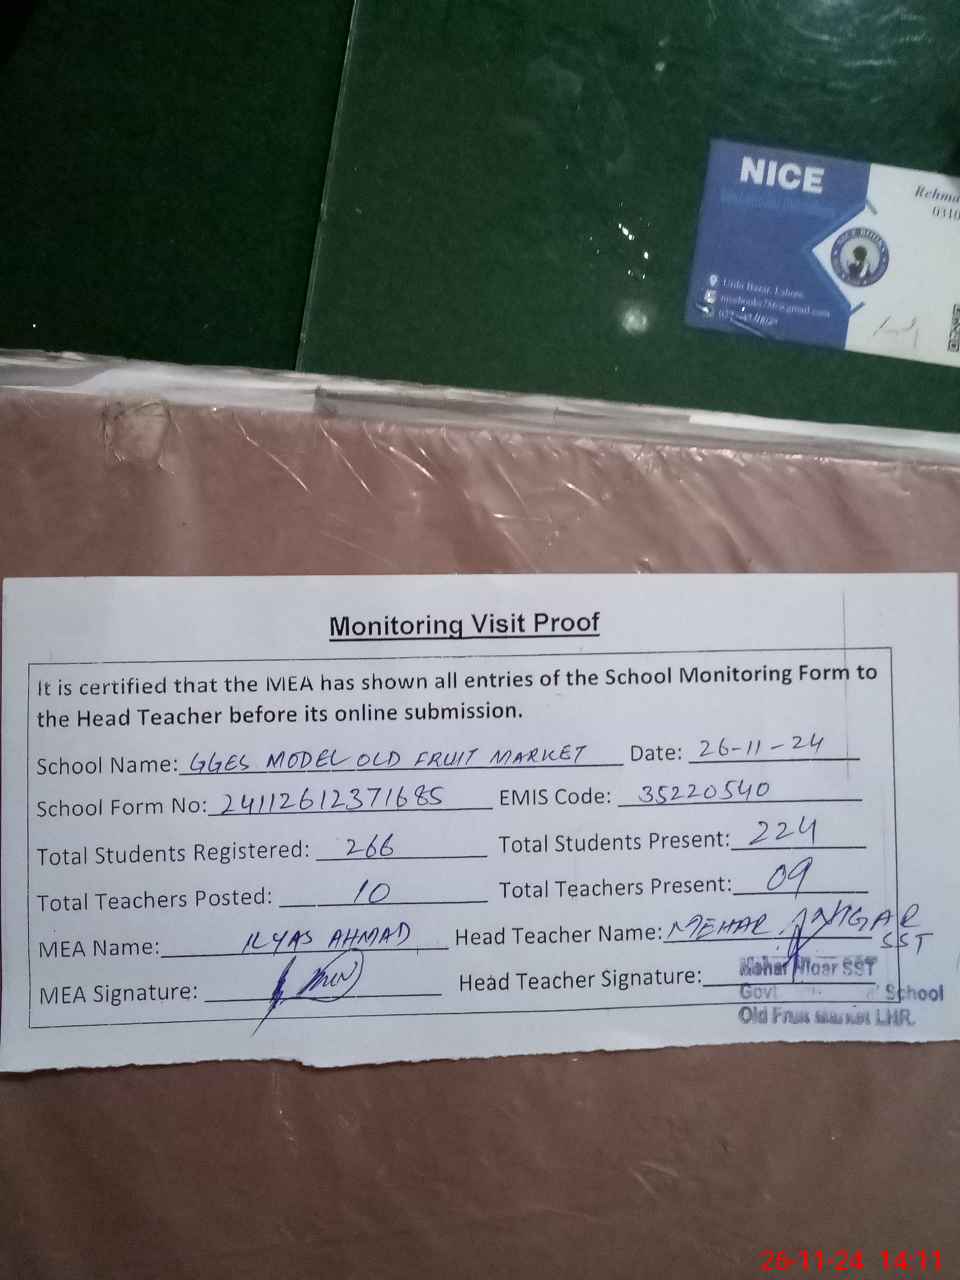 NICE
Rehma
0310
NICE BOOK
Urdu Bazar, Lahore.
Monitoring Visit Proof
It is certified that the MEA has shown all entries of the School Monitoring Form to
the Head Teacher before its online submission.
School Name: GGES MODEL OLD FRUIT MARKET Date: 26-11-24
School Form No: 24112612371685 EMIS Code: 35220540
Total Students Registered: 266 Total Students Present: 224
Total Teachers Posted: 10 Total Teachers Present: 09
MEA Name: ILYAS AHMAD Head Teacher Name: MEHAR NIGAR
SST
MEA Signature: Head Teacher Signature:
Mehar Nigar SST
Govt School
Old Fruit Market LHR.
26-11-24 14:11